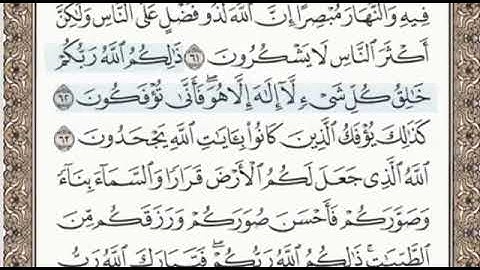 فِيهِ وَالنَّهَارَ مُبْصِرًا إِنَّ اللَّهَ لَذُو فَضْلٍ عَلَى النَّاسِ وَلَٰكِنَّ
أَكْثَرَ النَّاسِ لَا يَشْكُرُونَ ٦١ ذَٰلِكُمُ اللَّهُ رَبُّكُمْ
خَالِقُ كُلِّ شَيْءٍ لَّا إِلَٰهَ إِلَّا هُوَ ۖ فَأَنَّىٰ تُؤْفَكُونَ ٦٢
كَذَٰلِكَ يُؤْفَكُ الَّذِينَ كَانُوا بِآيَاتِ اللَّهِ يَجْحَدُونَ ٦٣
اللَّهُ الَّذِي جَعَلَ لَكُمُ الْأَرْضَ قَرَارًا وَالسَّمَاءَ بِنَاءً
وَصَوَّرَكُمْ فَأَحْسَنَ صُوَرَكُمْ وَرَزَقَكُم مِّنَ
الطَّيِّبَاتِ ۚ ذَٰلِكُمُ اللَّهُ رَبُّكُمْ ۖ فَتَبَارَكَ اللَّهُ رَبُّ